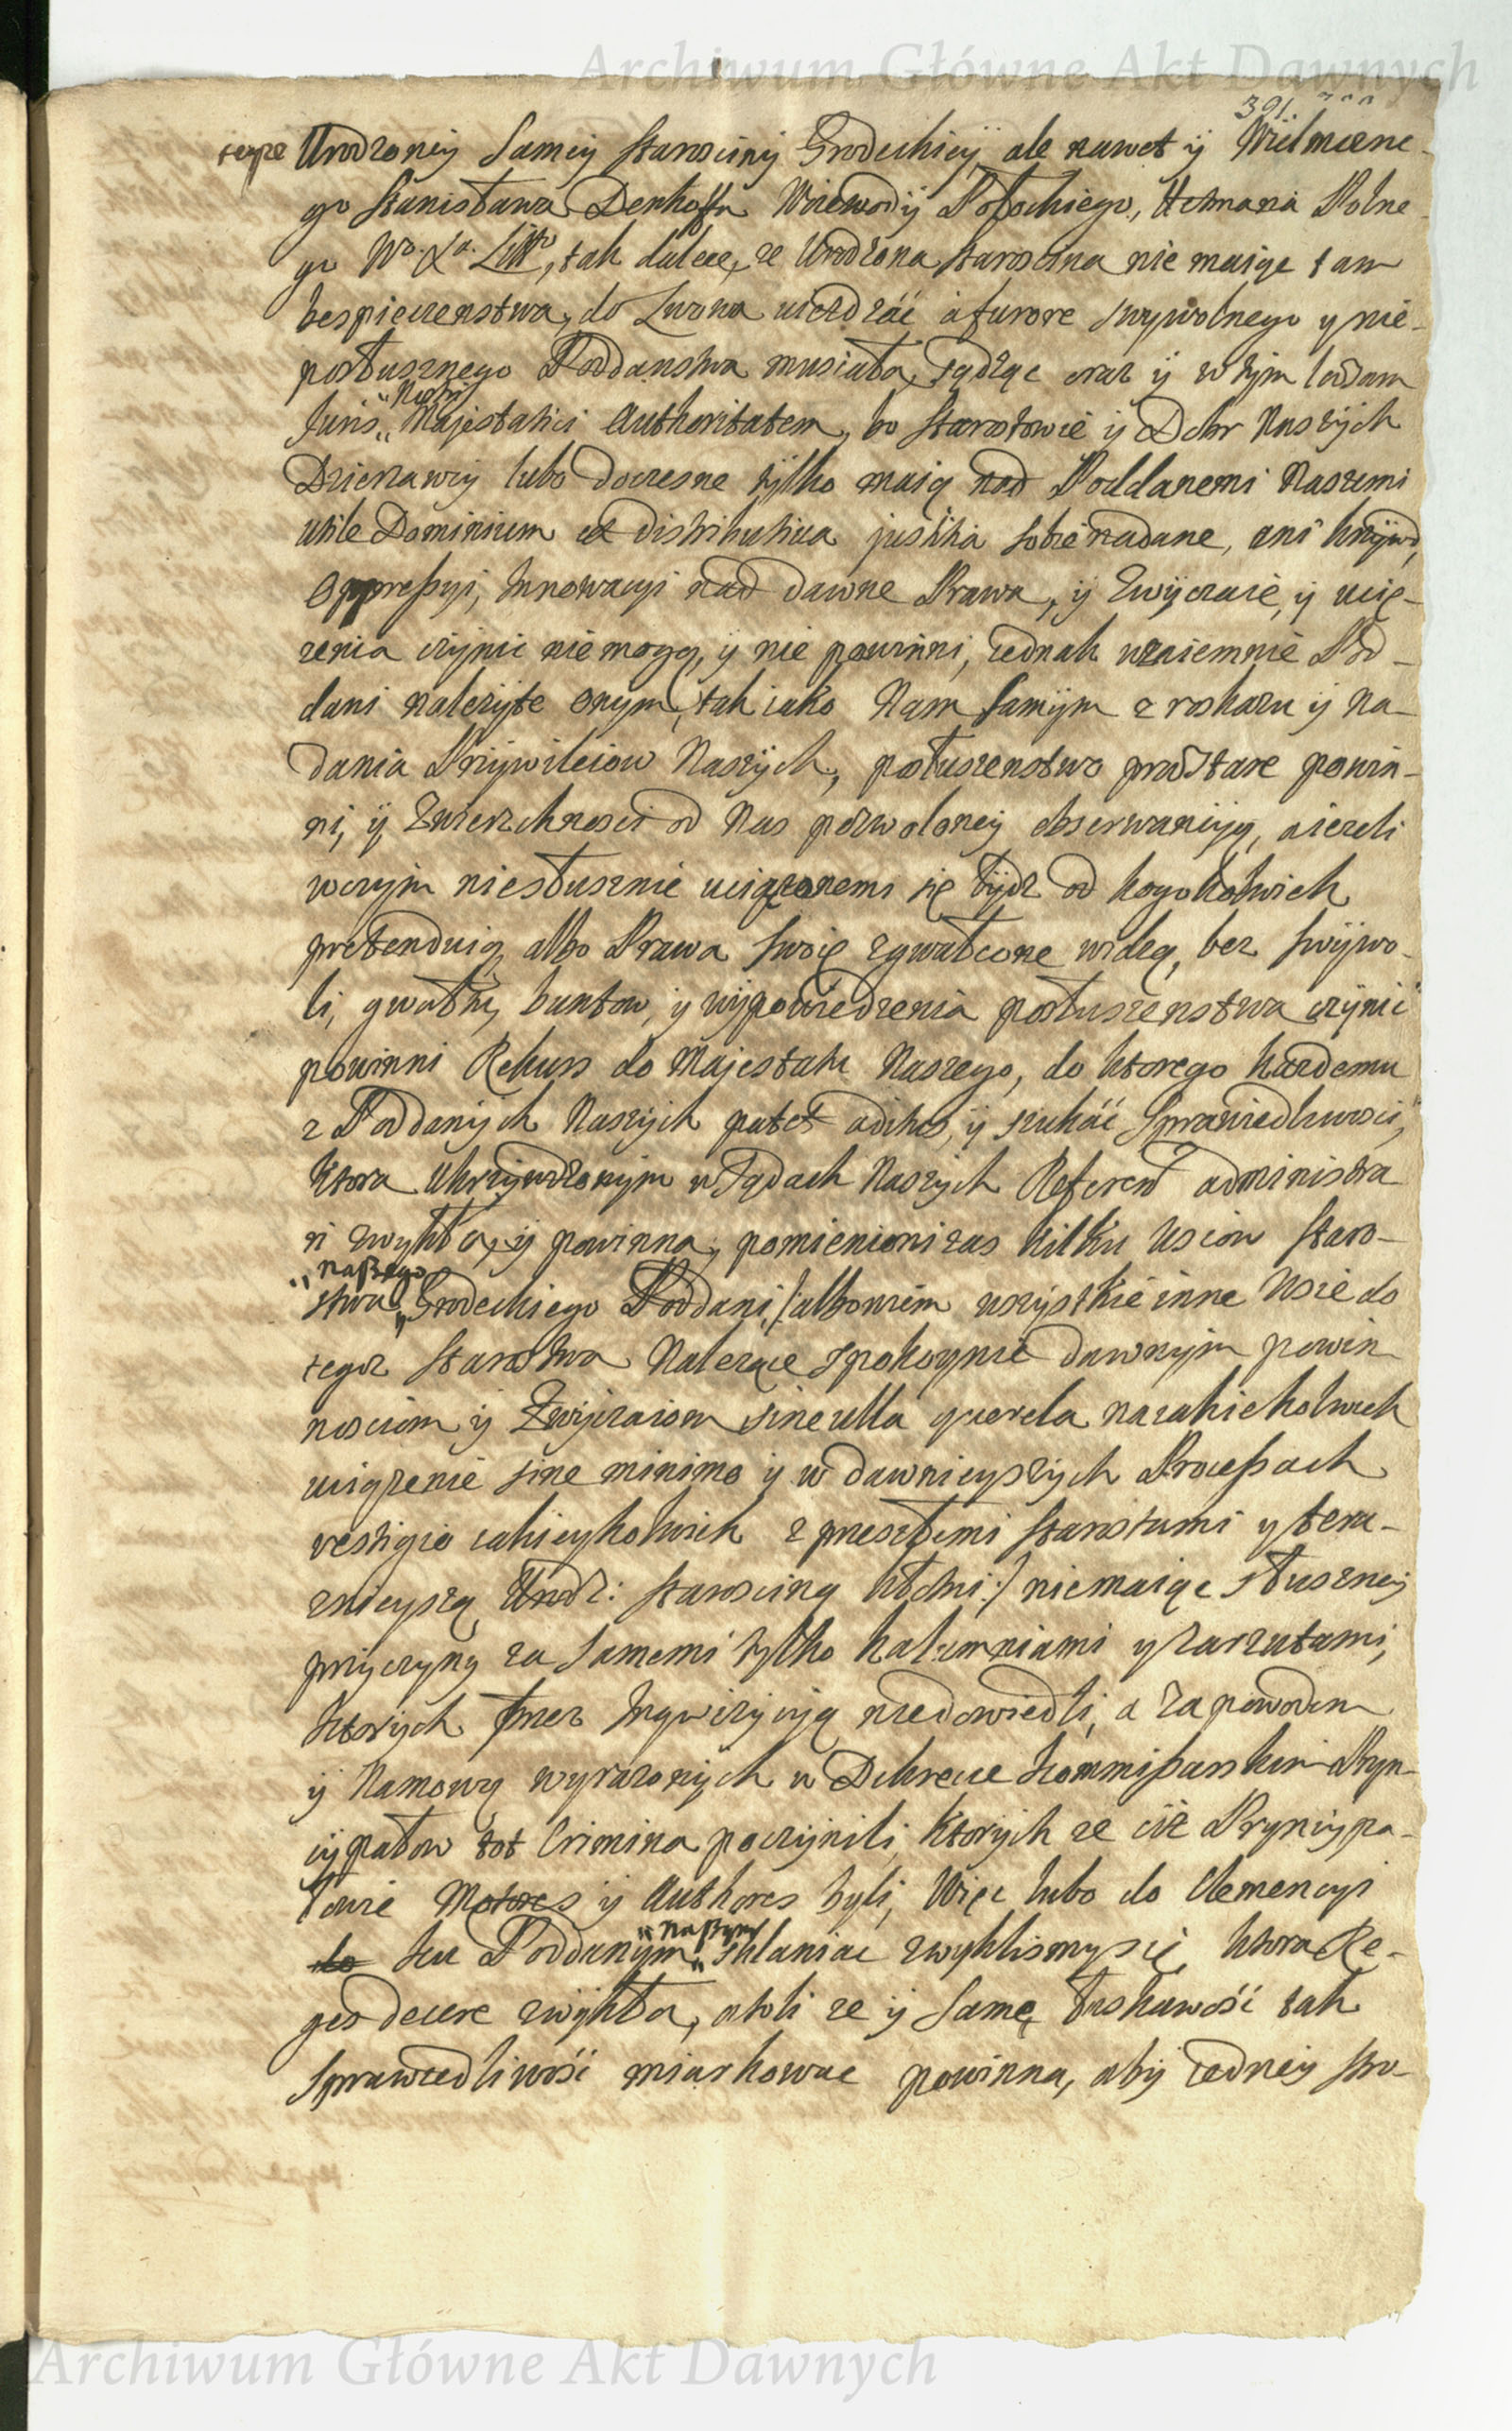 Archiwum Główne Akt Dawnych
391.
teyze Urodzoney Samey Starosciny Grodeckiey ale nawet y Wielmozne-
go Stanisława Denhoffa Woiewody Połockiego, Hetmana Polne-
go Wo. Xa. Litto, tak dalece, ze Urodzona Staroscina nie maiąc tam
bespieczenstwa, do Lwowa uiezdzać à furore swywolnego y nie-
posłusznego Poddanstwa musiała, sądząc oraz y w tym laedam
Juris „Nostri„ Majestatici Authoritatem, bo Starostowie y Dobr Naszych
Dzierzawcy lubo doczesne tylko maią nad Poddanemi Naszemi
utile Dominium et distributiva justitia sobie nadane, ani krzywd,
Oppressyi, Innowacyi nad dawne Prawa, y Zwyczaie, y ucię-
zenia czynic nie mogą, y nie powinni, iednak wzaiemnie Pod-
dani nalezyte onym, tak iako Nam Samym z roskazu y na-
dania Przywileiow Naszych, posłuszenstwo prestare powin-
ni, y Zwierzchnosci od Nas pozwoloney obserwancyą, a iezeli
w czym niesłusznie uciązonemi się bydz od kogokolwiek
pretenduią, albo Prawa swoie zgwałcone widzą, bez swywo-
li, gwałtu, buntow, y wypowiedzenia posłuszenstwa czynić
powinni Rekurs do Majestatu Naszego, do ktorego kazdemu
z Poddanych Naszych patet aditus, y szukać Sprawiedliwosci,
Ktora Ukrzywdzonym w Sądach Naszych Referend administra
ri zwykła, y powinna, pomienioni zas kilku wsiow Staro-
stwa „naszego„ Grodeckiego Poddani, /:albowiem wszystkie inne Wsie do
tegoz Starostwa Nalezące spokoynie dawnym powin
nosciom y Zwyczaiom sine ulla querela na iakiekolwiek
uciązenie sine minimo y w dawnieyszych Processach
vestigio iakieykolwiek z przeszłemi Starostami y tera-
znieyszą Urodz: Starosciną kłotni:/ niemaiąc słuszney
przyczyny za samemi tylko kalumniami y zarzutami,
ktorych przez Inqwizycyą niedowiedli, a za powodem
y Namową wyrazonych w Dekrecie Kommissarskim Pryn-
cypałow tot Crimina poczynili, ktorych ze ciz Pryncypa-
łowie Motores y Authores byli, Więc lubo do Clemencyi
do ku Poddanym „naszym„ skłaniac zwyklismy się, ktora Re-
ges decere zwykła, atoli ze y same łaskawość tak
Sprawiedliwość miarkowac powinna, aby iedney stro-
Archiwum Główne Akt Dawnych